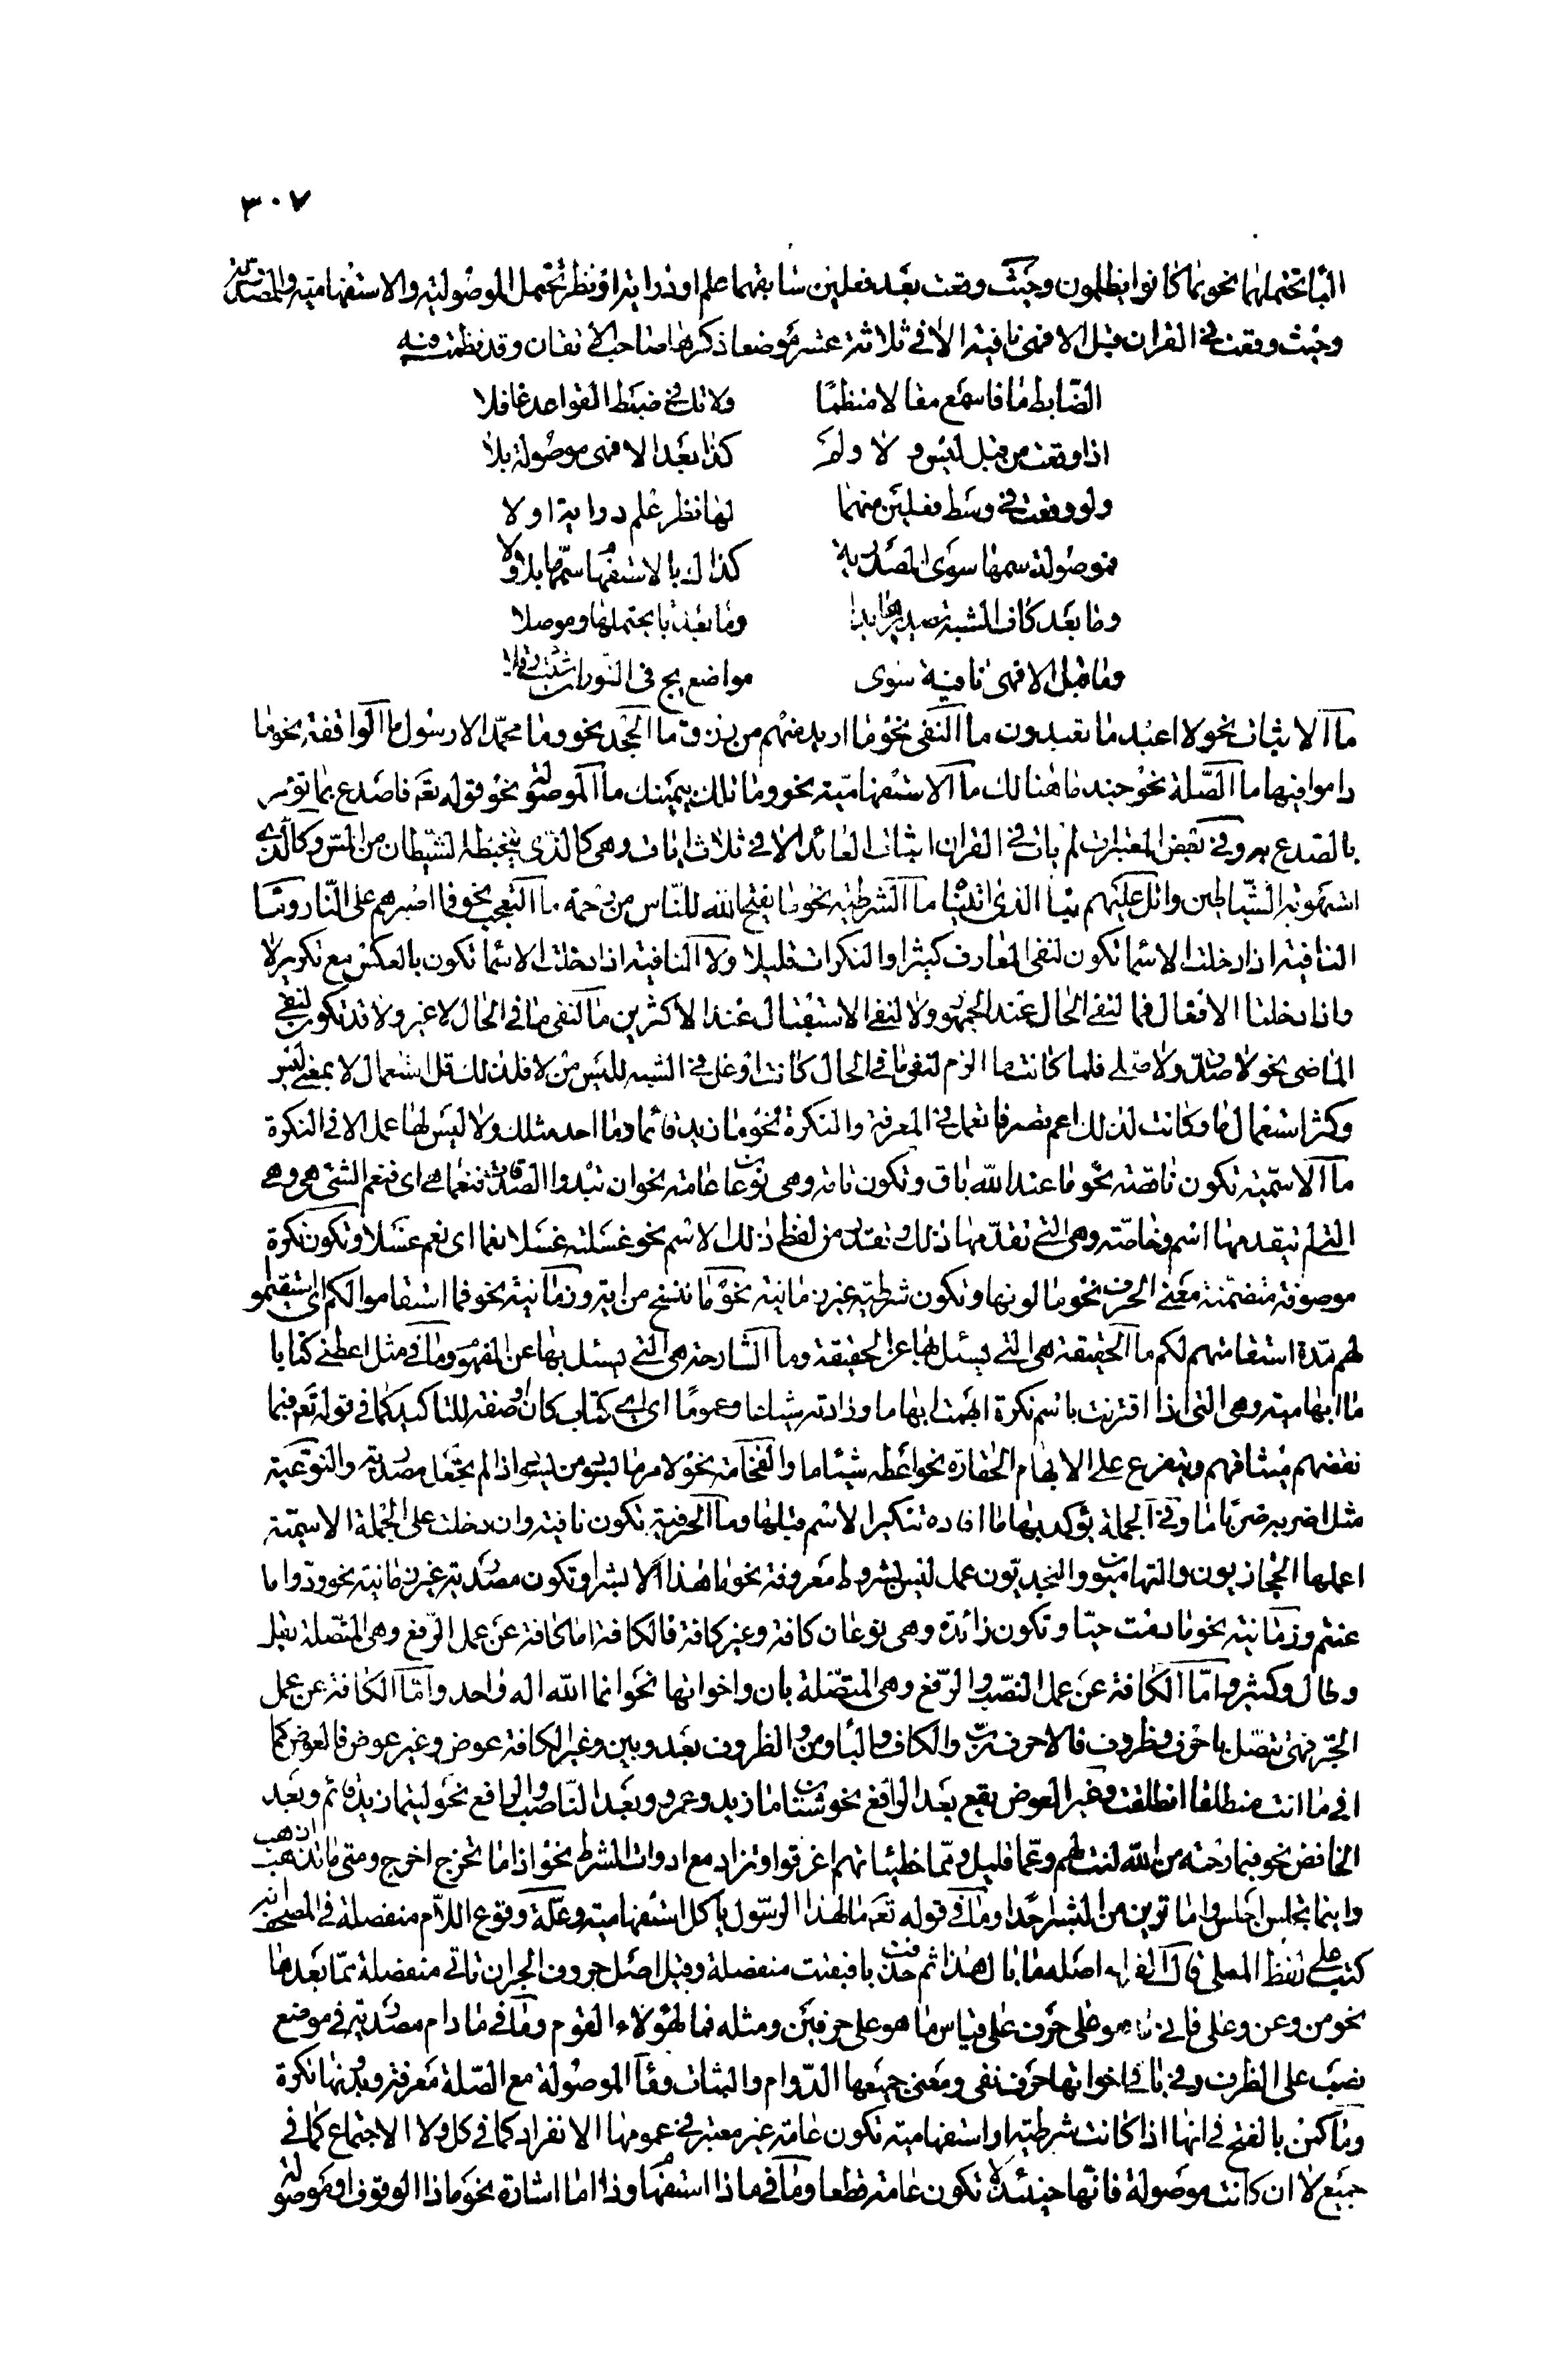 ٣٠٧
البا تحتملهما نحو بما كانوا يظلمون وحيث وقعت بعد فعلين سابقهما علم او دراية او نظر تحتمل الموصولية والاستفهامية والمصدرية
وحيث وقعت في القران قبل الا فهي نافية الا في ثلاثة عشر موضعا ذكرها صاحب الاتقان وقد نظمت فيه
الضابط ما فاسمع مقالا منظما ولا تك في ضبط القواعد غافلا
اذا وقعت من قبل ليس و لا ولم كذا بعد الا فهي موصولة بلا
ولو وقعت في وسط فعلين منهما لها نظر علم دراية او لا
فموصولة سمها سوى المصدرية كذاك بالاستفهام سمها بلا ولا
وما بعد كاف الشبه وما بعد با يحتملها وموصلا
وما قبل الا فهي نافية سوى مواضع يج في النورات
ما الاثبات نحو لا اعبد ما تعبدون ما النفي نحو ما اريد منهم من رزق ما الجحد نحو وما محمد الا رسول ما الوافقة نحو ما
داموا فيها ما الصلة نحو جند ما هنالك ما الاستفهامية نحو وما تلك بيمينك ما الموصولة نحو قوله تعم فاصدع بما تؤمر
بالصدع به وفي بعض المعتبرات لم يات في القران اثبات العائد الا في ثلاث ايات وهي كالذي يتخبطه الشيطان من المس وكالذي
استهوته الشياطين واتل عليهم نبا الذي اتيناه ما الشرطية نحو ما يفتح الله للناس من رحمة ما التعجب نحو فما اصبرهم على النار وما
النافية اذا دخلت الاسما تكون لنفي المعارف كثيرا والنكرات قليلا ولا النافية اذا دخلت الاسما تكون بالعكس مع تكريرلا
واذا دخلتا الافعال فما لنفي الحال عند الجمهور ولا لنفي الاستقبال عند الاكثرين ما لنفي ما في الحال لا غير ولا قد تكون لنفي
الماضي نحو لا صدق ولا صلى فلما كانت ما الزم لنفي ما في الحال كانت اوغل في الشبه لليس من لا فلذلك قل استعمال لا بمعنى ليس
وكثر استعمال ما وكانت لذلك اعم تصرفا تعمل في المعرفة والنكرة نحو ما زيد قائما وما احد مثلك ولا ليس لها عمل الا في النكرة
ما الاسمية تكون ناقصة نحو ما عند الله باق وتكون تامة وهي نوعان عامة نحو ان تبدوا الصدقات فنعما هي اي فنعم الشيء هي وهي
التي لم يتقدمها اسم وخاصة وهي التي تقدمها ذلك وتقدر من لفظ ذلك الاسم نحو غسلته غسلا نعما اي نعم غسلا وتكون نكرة
موصوفة متضمنة معنى الحرف نحو ما لونها وتكون شرطية غير زمانية نحو ما ننسخ من اية وزمانية نحو فما استقاموا لكم اي استقيموا
لهم مدة استقامتهم لكم ما الحقيقة هي التي يسئل بها عن الحقيقة وما الشارحة هي التي يسئل بها عن المفهوم وما في مثل اعطني كتابا
ما ابهامية وهي التي اذا اقترنت باسم نكرة ابهمت ابهاما وزادته شياعا وعموما اي اي كتاب كان او صفة للتاكيد كما في قوله تعم فبما
نقضهم ميثاقهم ويتفرع على الابهام الحقارة نحو اعطه شيئا ما والفخامة نحو لامر ما يسود من يسود اذا لم يجعل مصدرية والنوعية
مثل اضربه ضربا ما وفي الجملة يؤكد بها ما افاده تنكير الاسم قبلها وما الحرفية تكون نافية وان دخلت على الجملة الاسمية
اعملها الحجازيون والتهاميون والنجديون عمل ليس بشروط معروفة نحو ما هذا الا بشرا وتكون مصدرية غير زمانية نحو ودوا ما
عنتم وزمانية نحو ما دمت حيا وتكون زائدة وهي نوعان كافة وغير كافة فالكافة اما كافة عن عمل الرفع وهي المتصلة بقل
وطال وكثر واما الكافة عن عمل النصب والرفع وهي المتصلة بان واخواتها نحو انما الله اله واحد واما الكافة عن عمل
الجر فهي تتصل باحرف وظروف فالاحرف رب والكاف والبا ومن والظروف بعد وبين وغير الكافة عوض وغير عوض فالعوض كما
في ما انت منطلقا انطلقت وغير العوض يقع بعد الرافع نحو شتان ما زيد وعمرو وبعد الناصب الرافع نحو ليتما زيد قائم وبعد
الخافض نحو فبما رحمة من الله لنت لهم وعما قليل ومما خطيئاتهم اغرقوا وتزاد مع ادوات الشرط نحو اذا ما تخرج اخرج ومتى ما تذهب اذهب
واينما تجلس اجلس واما ترين من البشر احدا وما في قوله تعم مال هذا الرسول ياكل استفهامية وعلة وقوع اللام منفصلة في المصحف انه
كتب على لفظ المملي قال الفراء اصله ما بال هذا ثم حذفت با فبقيت منفصلة وقيل اصل حروف الجر ان تاتي منفصلة مما بعدها
نحو من وعن وعلى فاتى ما هو على حرف على قياس ما هو على حرفين ومثله فما لهؤلاء القوم وما في ما دام مصدرية في موضع
نصب على الظرف وفي باقي اخواتها حرف نفي ومعنى جميعها الدوام والثبات وما الموصولة مع الصلة معرفة وبدونها نكرة
وما كمن بالفتح في انها اذا كانت شرطية او استفهامية تكون عامة غير معتبر في عمومها الا نفراد كما في كل ولا الاجتماع كما في
جميع لا ان كانت موصولة فانها حينئذ لا تكون عامة قطعا وما في ماذا استفهام وذا اما اشارة نحو ماذا الوقوف او موصولة